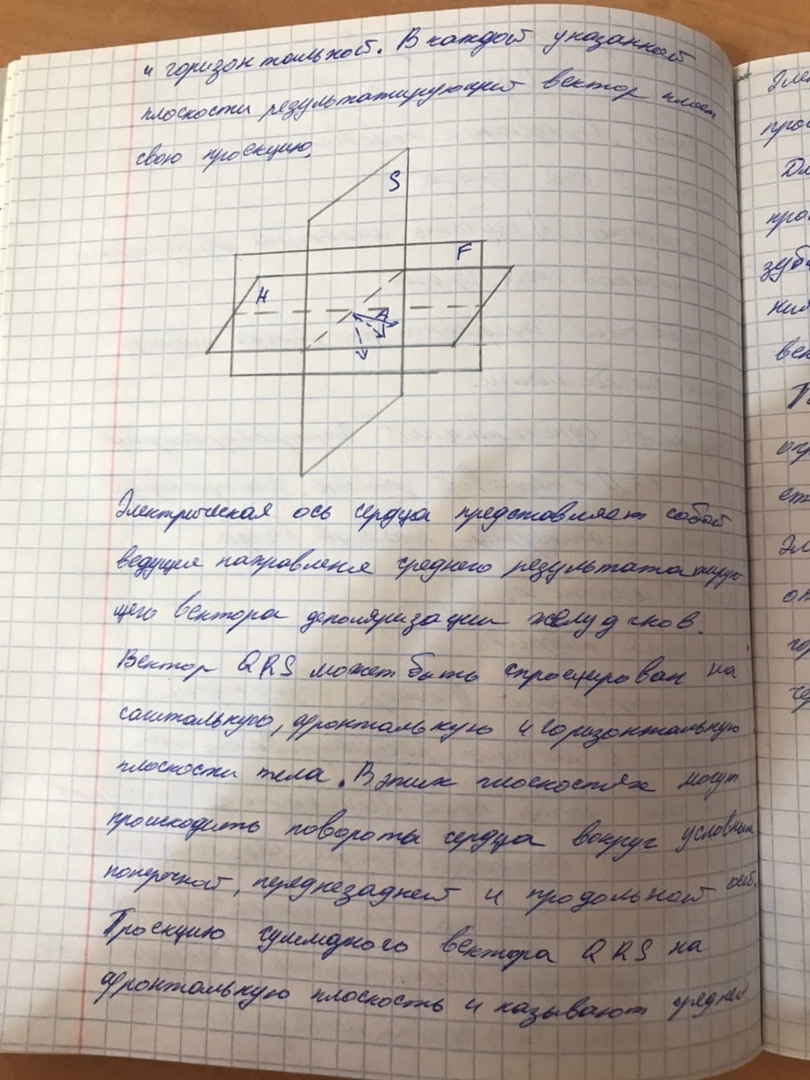 и горизонтальной. В каждой указанной
плоскости результатирующий вектор имеет
свою проекцию.
S
F
H
A
Электрическая ось сердца представляет собой
ведущее направление среднего результатирую
щего вектора деполяризации желудчков.
Вектор QRS может быть спроецирован на
сагитальную, фронтальную и горизонтальную
плоскости тела. В этих плоскостях могут
происходить повороты сердца вокруг условных
поперечной, переднезадней и продольной осей.
Проекцию суммарного вектора QRS на
фронтальную плоскость и называют средней
Элек
про
Дл
про
зуб
ни
век
ет
Эл
от
го
че